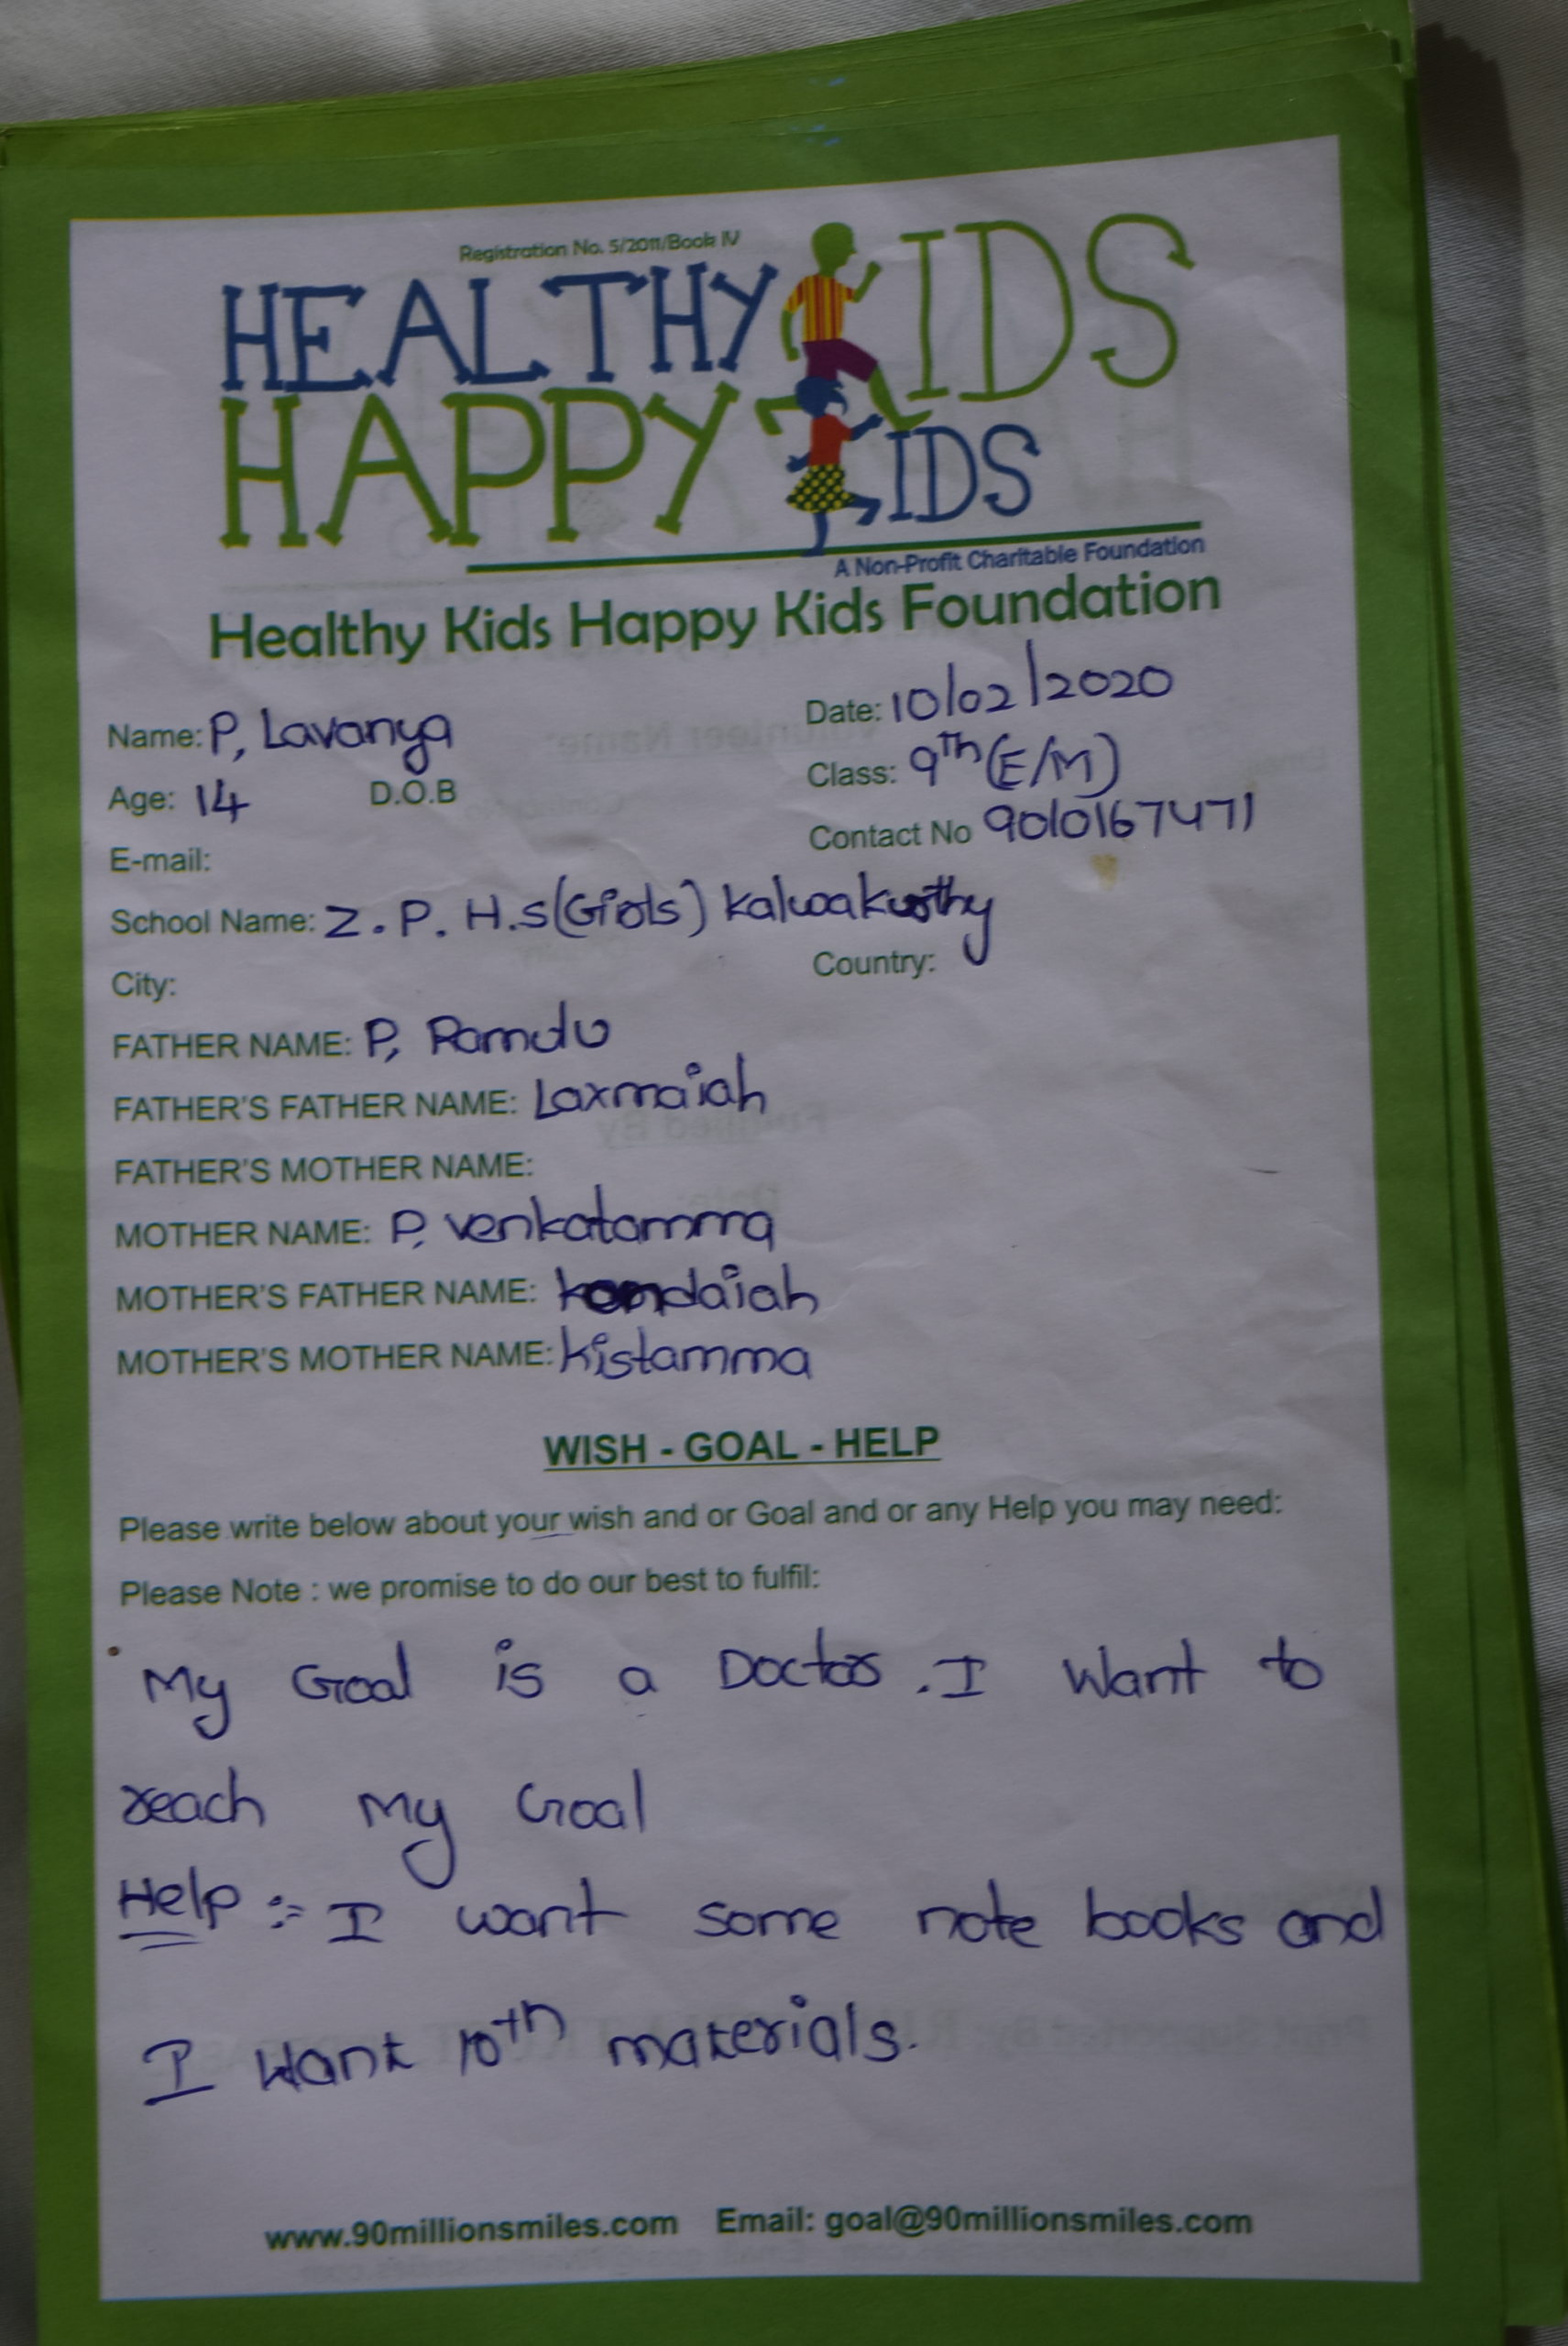 Registration No. 5/2011/Book IV
HEALTHY KIDS
HAPPY KIDS
A Non-Profit Charitable Foundation
Healthy Kids Happy Kids Foundation
Name: P, Lavanya Date: 10/02/2020
Age: 14 D.O.B Class: 9Th (E/M)
E-mail: Contact No 9010167471
School Name: Z. P. H.S (Girls) kalwakurthy
City: Country:
FATHER NAME: P, Ramulu
FATHER'S FATHER NAME: Laxmaiah
FATHER'S MOTHER NAME:
MOTHER NAME: P, venkatamma
MOTHER'S FATHER NAME: kondaiah
MOTHER'S MOTHER NAME: kistamma
WISH - GOAL - HELP
Please write below about your wish and or Goal and or any Help you may need:
Please Note : we promise to do our best to fulfil:
My Goal is a Doctor. I want to
reach My Goal
Help :- I want some note books and
I want 10th materials.
www.90millionsmiles.com Email: goal@90millionsmiles.com